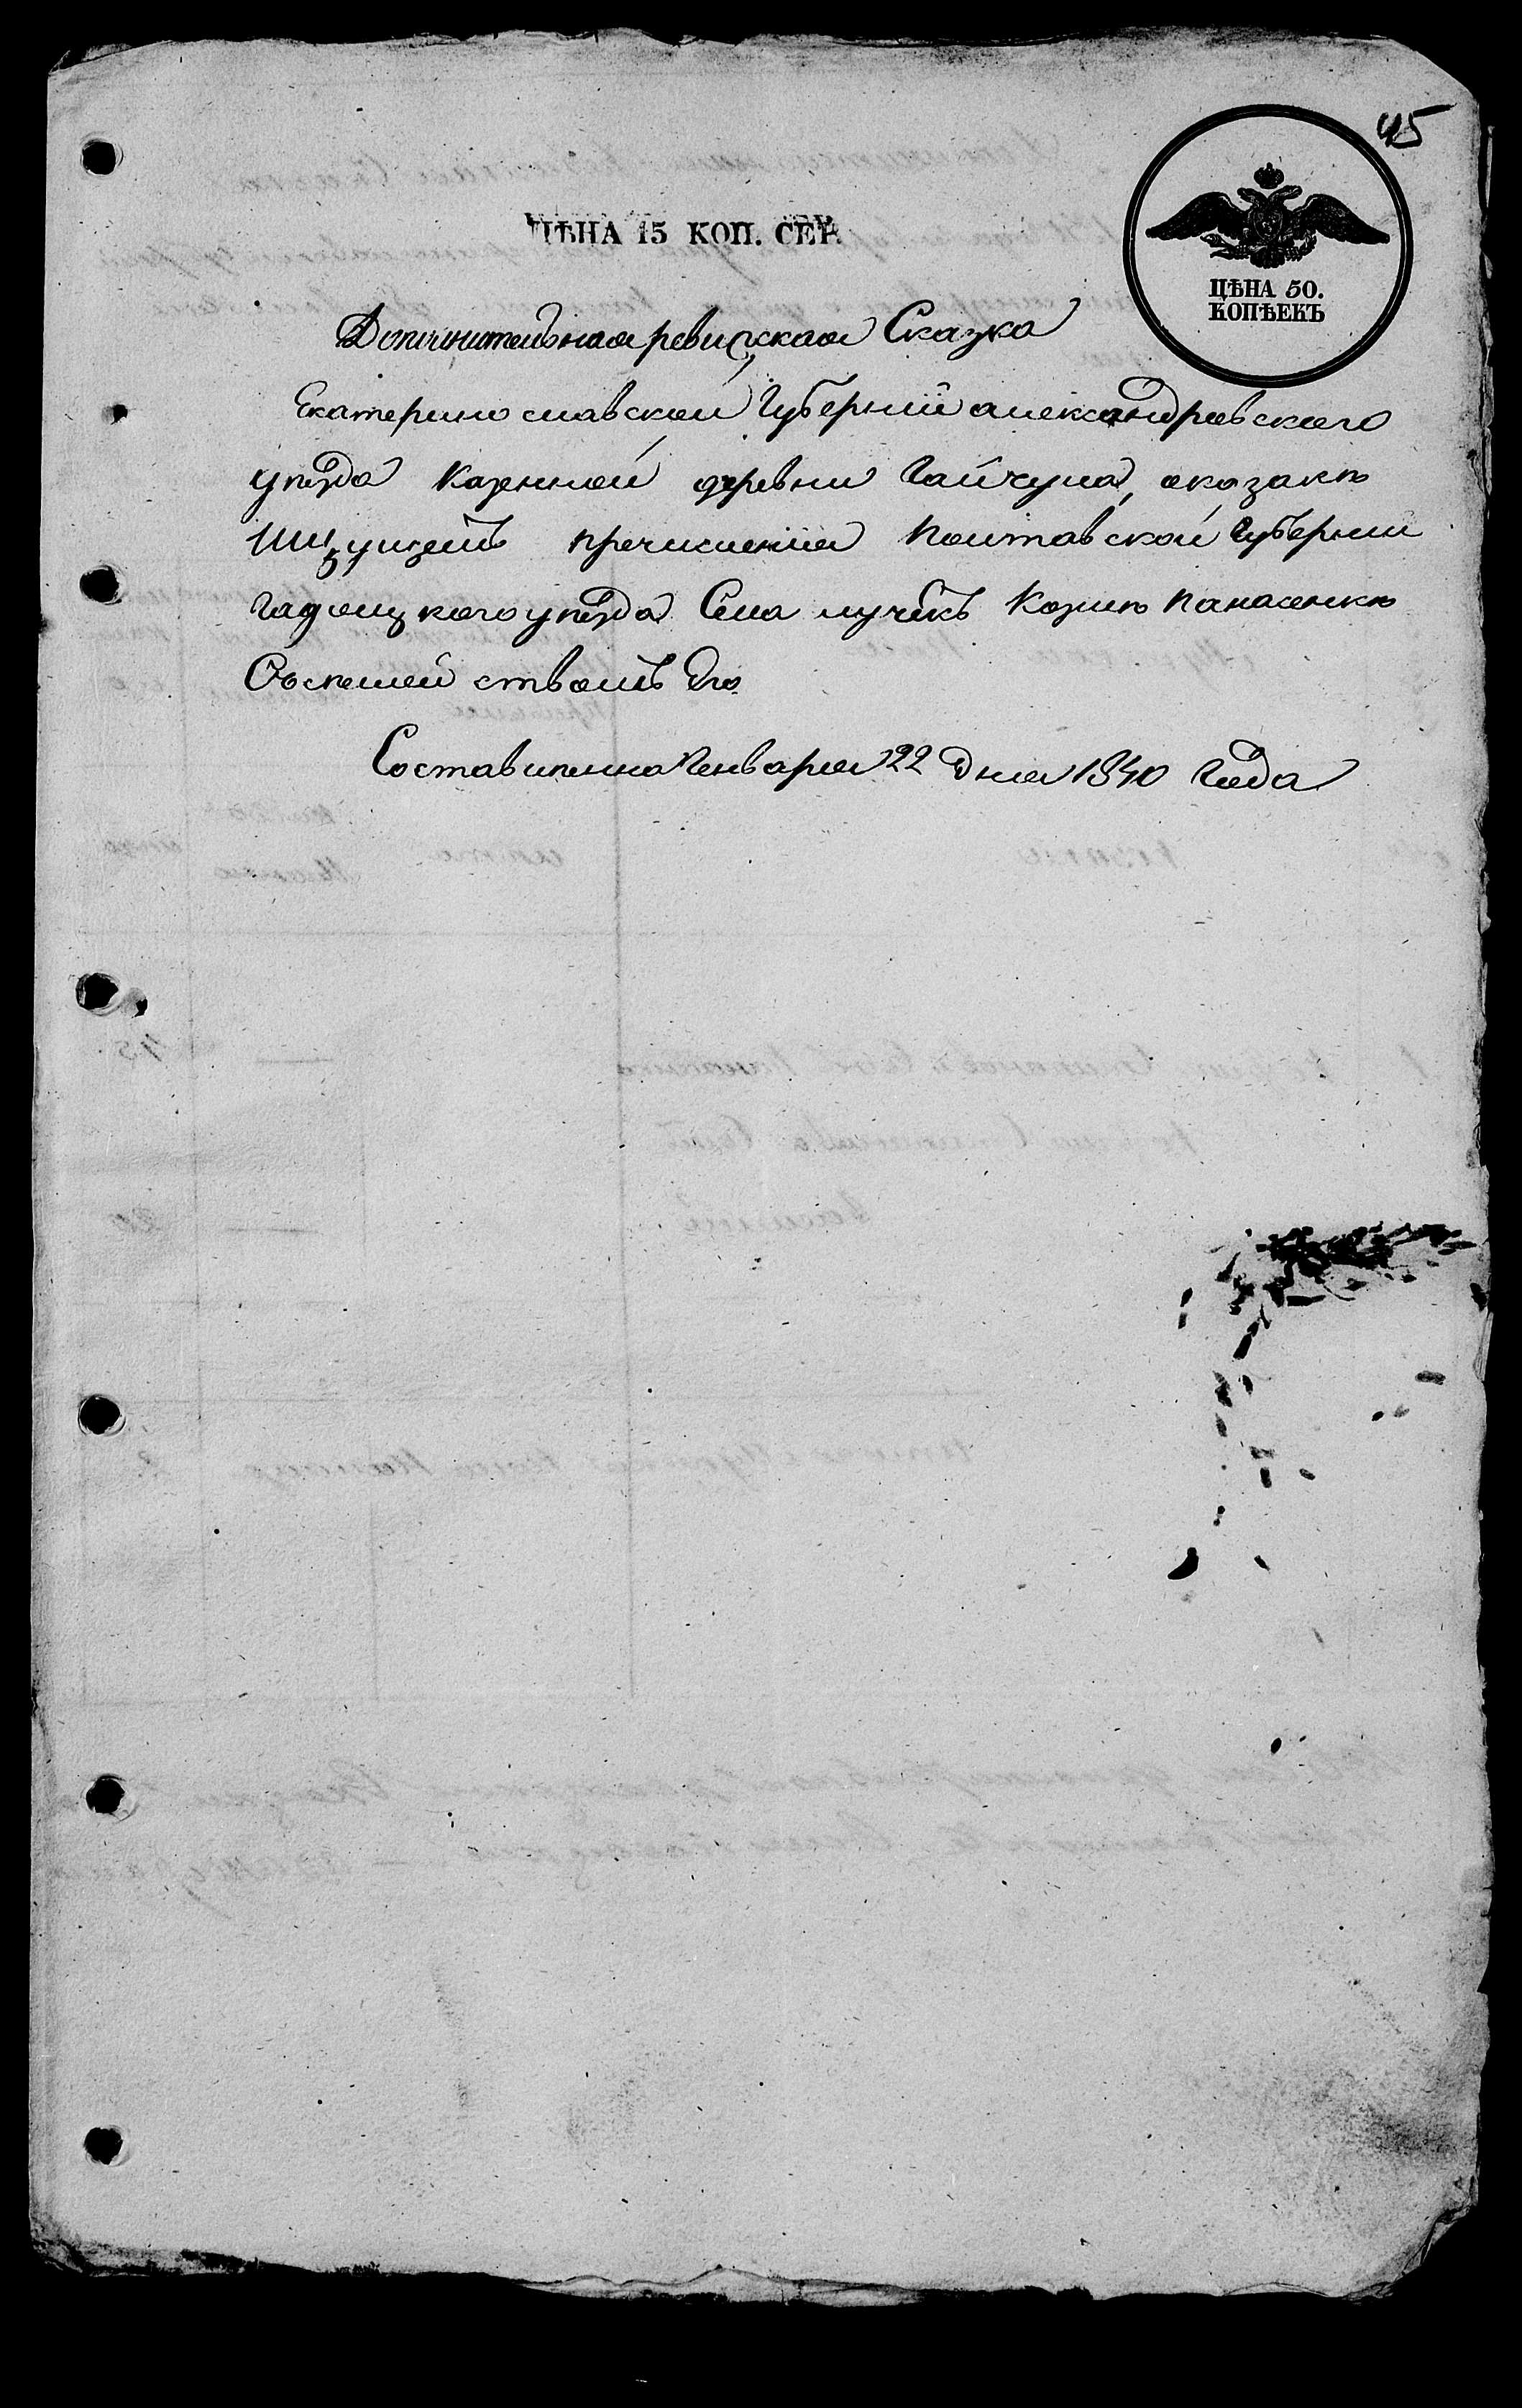 45
ЦѢНА 15 КОП. СЕР.
ЦѢНА 50.
КОПѢЕКЪ
Дополнительная ревизская Сказка
Екатеринославской Губернии александровского
уезда Казенной деревни Гайчула, оказаке
ищущемъ пречисления Полтавской Губернии
гадяцкого уезда Села лучекъ Козме Панасенке
Съ семействомъ Его
Составленна Генваря 22 дня 1840 Года